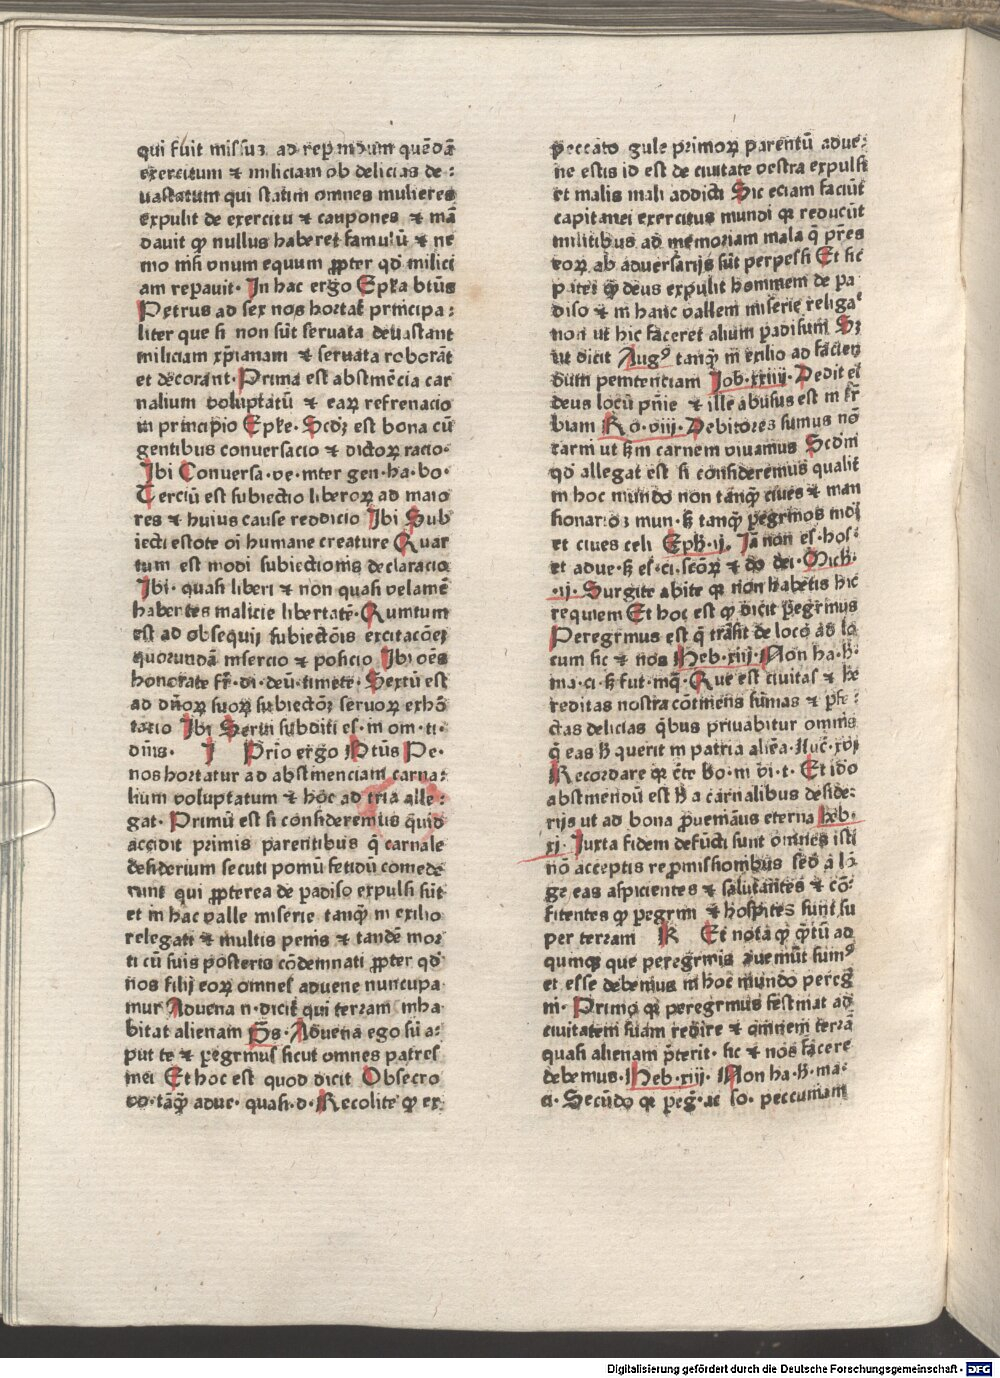 qui fuit missus ad reprimdum quēdā
exercitum ⁊ miliciam ob delicias de:
uastatum qui statim omnes mulieres
expulit de exercitu ⁊ caupones ⁊ mā
dauit ꝙ nullus haberet famulū ⁊ ne
mo nisi vnum equum ꝓpter qđ milici
am reparauit· In hac ergo Epŀa btūs
Petrus ad sex nos hortat̄ principa:
liter que si non sūt seruata deuastant
miliciam xp̄ianam ⁊ seruata roborāt
et decorant· Prima est abstinēcia car
nalium voluptatū ⁊ eaꝝ refrenacio
in principio Epŀe· Scđꝫ est bona cū
gentibus conuersacio ⁊ dictoꝝ racio·
Ibi Conuersa·ve·inter gen·ha·bo·
Terciū est subiectio liberoꝝ ad maio
res ⁊ huius cause reddicio Ibi Sub
iecti estote oī humane creature Quar
tum est modi subiectionis declaracio
Ibi· quasi liberi ⁊ non quasi velamē
habentes malicie libertatē· Quintum
est ad obsequij subiectōis excitacōeꝫ
quorundā insercio ⁊ posicio Ibi oēs
honorate fr̄·di·deū·timete· Sextū est
ad dn̄oꝝ suoꝝ subiectōꝫ seruoꝝ exhō
tacio Ibi Serui subditi es·in om·ti·
dn̄is· I Prīo ergo Ptūs Pe·
nos hortatur ad abstinenciam carna:
lium voluptatum ⁊ hōc ad tria alle:
gat· Primū est si consideremus q̄uid
accidit primis parentibus q̄ carnale
desiderium secuti pomū fetidū comede
runt qui ꝓpterea de padiso expulsi sūt
et in hac valle miserie tanq̄ in exilio
relegati ⁊ multis penis ⁊ tandē mor
ti cū suis posteris cōdemnati ꝓpter qđ
nos filij eoꝝ omnes aduene nuncupa
mur Aduena n·dicit̄ qui terram inha
bitat alienam Ps· Aduena ego sū a:
put te ⁊ peregrinus sicut omnes patres
mei Et hoc est quod dicit Obsecro
vo·tāq̄ adue· quasi·d· Recolite ꝙ ex
peccato gule primoꝝ parentū adue:
ne estis id est de ciuitate vestra expulsi
et malis mali addicti Sic eciam faciūt
capitanei exercitus mundi qꝛ reducūt
militibus ad memoriam mala q̄ pr̄es
eoꝝ ab aduersarijs sūt perpessi Et sic
patet ꝙ deus expulit hominem de pa
diso ⁊ in hanc vallem miserie religaᵗ
non ut hic faceret alium padisum Sꝫ
ut dicit Augꝰ tanq̄ in exilio ad facien
dum penitentiam Job·xxiiij· Dedit ei
deus locū pn̄ie ⁊ ille abusus est in sr̄
biam Ro·viij· Debitores sumus nō
carni ut ẜm carnem viuamus Scd̄m
qđ allegat est si consideremus qualit̄
in hoc mundo non tanq̄ ciues ⁊ man
sionarioꝫ mun·ꝫ tanq̄ pegrinos mōi
et ciues celi Eph·ij· Iā non es·hos·
et adue·ẜ es·ci·scōꝝ ⁊ do dei· Mich·
·ij· Surgite abite qꝛ non habetis hic
requiem Et hoc est ꝙ dicit pegrinus
Peregrinus est q̄ trāsit de loco ad lo
cum sic ⁊ nos Heb·xiij· Non ha·h̄·
ma·ci·ẜ fut·inq̄· Que est ciuitas ⁊ he
reditas nostra cōtinens sūmas ⁊ pfe:
ctas delicias q̄bus priuabitur omnis
q̄ eas h̄ querit in patria aliēa· Luc̄·xvj
Recordare qꝛ c̄te bo·in vi·t· Et idō
abstinendū est h̄ a carnalibus deside:
rijs ut ad bona ꝓuemāus eterna heb·
xj· Iuxta fidem defūcti sunt omnes isti
nō acceptis repmissionibus sed a lō
ge eas aspicientes ⁊ salutantes ⁊ cō:
fitentes ꝙ pegrini ⁊ hospites sunt su
per terram K Et nota ꝙ q̄tū ad
quinqꝫ que peregrinis ꝯuemūt simꝰ
et esse debemus in hoc mundo pereg
ni· Primo qꝛ peregrinus festinat ad
ciuitatem suam redire ⁊ omnem terrā
quasi alienam p̄terit· sic ⁊ nos facere
debemus· Heb·xiij· Non ha·h̄·ma·
ci· Secūdo qꝛ peḡ·ac so· peccuniam
Digitalisierung gefördert durch die Deutsche Forschungsgemeinschaft · DFG